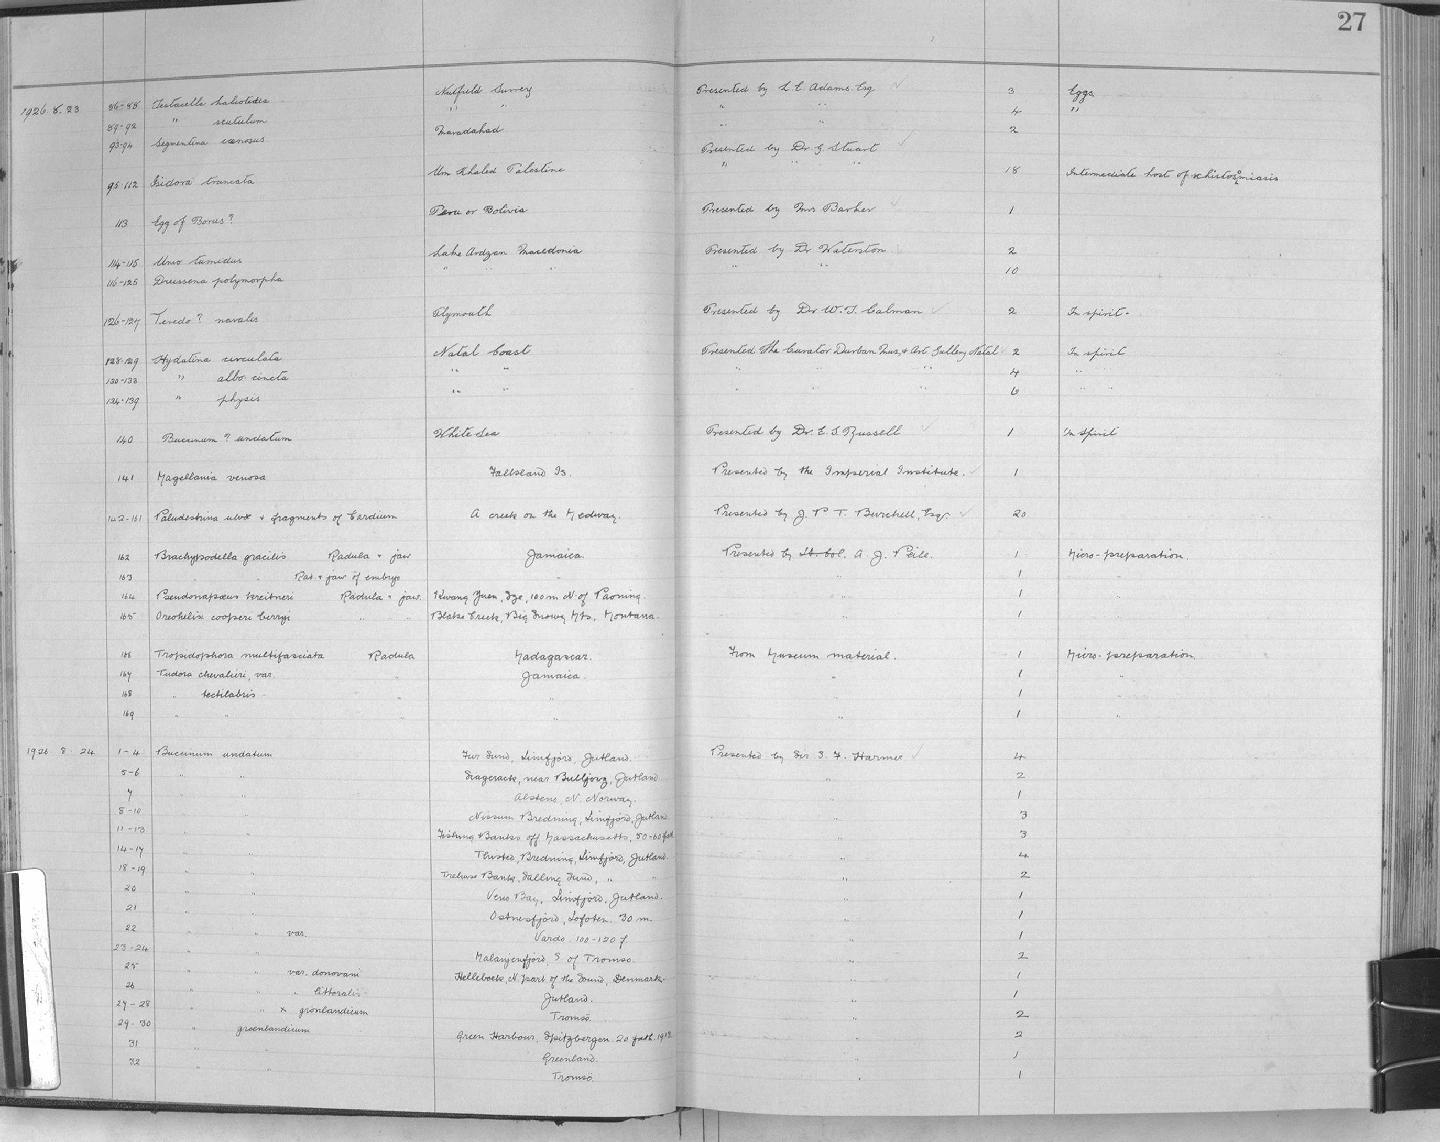 27
1926.8.23 86-88 Testacella haliotidea Nutfield Surrey Presented by L. E. Adams. Esq 3 Eggs
89-92 " scutulum " " " " 4 "
93-94 Segmentina Moradabad " " 2
Presented by Dr G Stuart
95-112 Isidora truncata Um Khaled Palestine " " " 18 Intermediate host of schistosomiasis
113 Egg of Borus? Peru or Bolivia Presented by Mrs Barker 1
114-115 Unio tumidus Lake Ardzan Macedonia Presented by Dr Waterston 2
116-125 Dreissena polymorpha " " " " 10
126-127 Teredo? navalis Plymouth Presented by Dr W. T. Calman 2 In spirit.
128-129 Hydatina circulata Natal Coast Presented The Curator Durban Mus. & Art Gallery Natal 2 In spirit
130-133 " albo cincta " " " " " 4 "
134-139 " physis " " " " " 6 " "
140 Buccinum? undatum White Sea Presented by Dr. E. S. Russell 1 In Spirit
141 Magellania venosa Falkland Is. Presented by the Imperial Institute. 1
142-161 Paludestrina ulvæ & fragments of Cardium A creek on the Medway. Presented by J. P. T. Burchell, Esq. 20
162 Brachypodella gracilis Radula & jaw Jamaica. Presented by Lt. Col. A. J. Peile. 1 Micro-preparation.
163 " " Rad. & jaw of embryo " " 1
164 Pseudonapæus kreitneri Radula & jaw. Kwang Yuen, Sze, 100 m N. of Paoning. " 1
165 Oreohelix cooperi berryi " " Blake Creek, Big Snowy Mts, Montana. " 1
166 Tropidophora multifasciata Radula Madagascar. From Museum material. 1 Micro-preparation.
167 Tudora chevalieri, var. " Jamaica. " 1 "
168 " tectilabris " " 1
169 " " " " " 1 "
1926 8 24 1-4 Buccinum undatum Fur Sund, Limfjord, Jutland. Presented by Sir S. F. Harmer 4
5-6 " " Skagerack, near Bulbjerg, Jutland " 2
7 " " Alsteno, N. Norway. 1
8-10 " Nissum Bredning, Limfjord, Jutland " 3
11-13 " Fishing Banks off Massachusetts, 50-60 fath. " 3
14-17 " " Thisted, Bredning, Limfjord, Jutland. " 4
18-19 " " Bank, Salling Sund, " " " 2
20 " " Bay, Limfjord, Jutland. " 1
21 " " Ostnesfjord, Lofoten. 30 m. " 1
22 " " var. Vardo. 100-120 f. " 1
23-24 " " Malangenfjord, S of Tromso. " 2
25 " " var. donovani Hellebæk, N part of the Sound, Denmark. " 1
26 " " " littoralis Jutland. " 1
27-28 " " x gronlandicum Tromsö. " 2
29-30 " groenlandicum Green Harbour. Spitzbergen. 20 fath. 2
31 " " Greenland. " 1
32 " " Tromsö. " 1